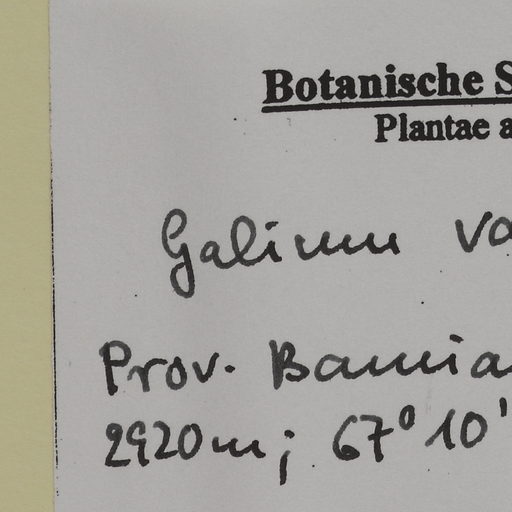 Botanische S
Plantae a
Galium va
Prov. Bamia
2920m; 67° 10'